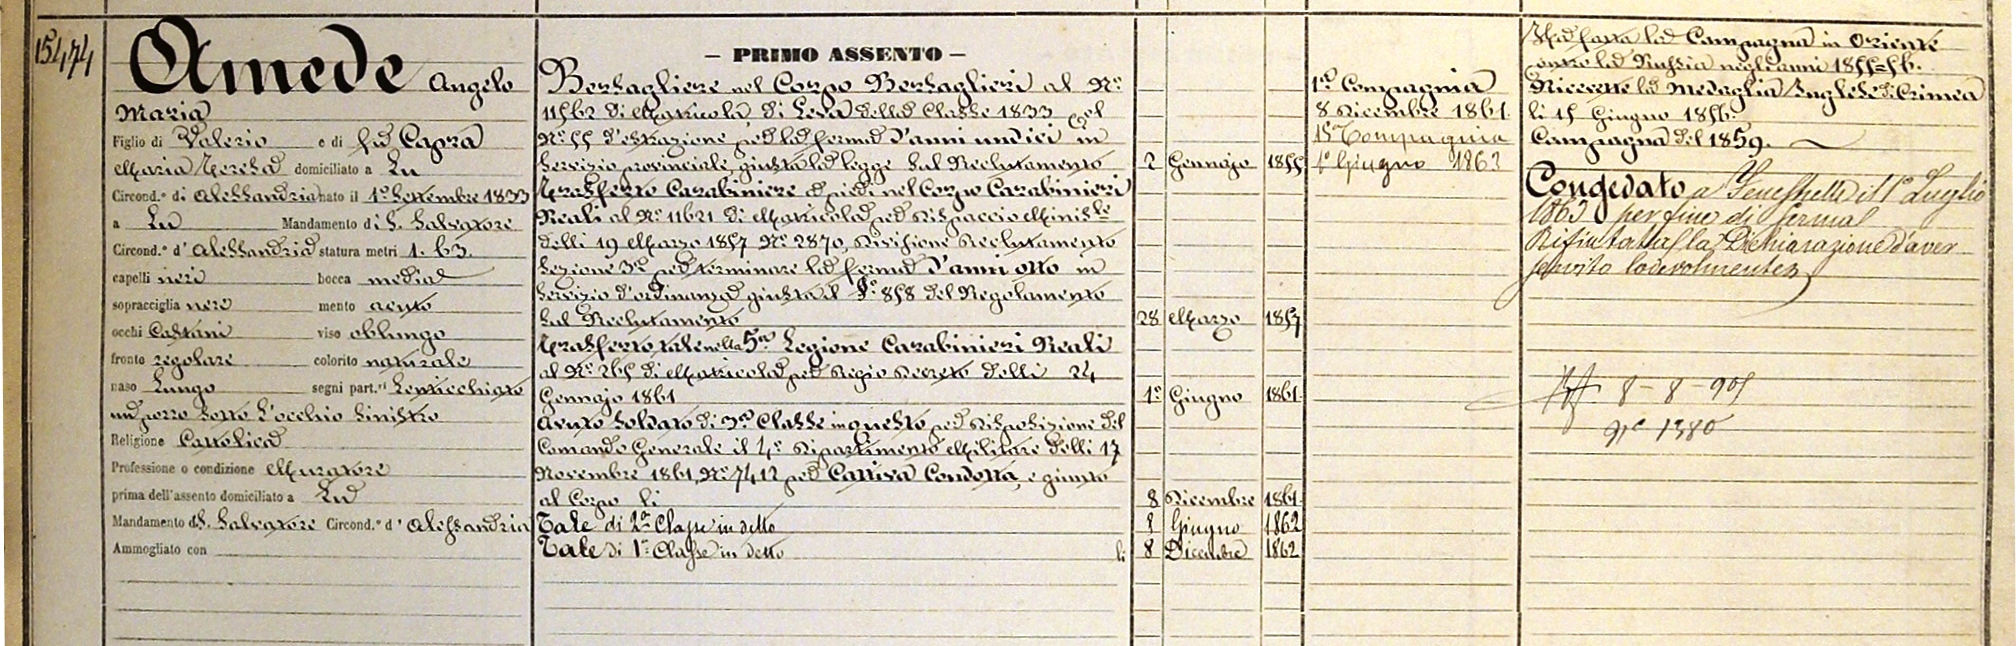 15474
Amede Angelo
Maria
Figlio di Valerio e di fu Capra
Maria Teresa domiciliato a Lu
Circond.º di Alessandria nato il 1º Settembre 1833
a Lu Mandamento di S. Salvatore
Circond.º d' Alessandria statura metri 1. 63.
capelli neri bocca media
sopracciglia nere mento acuto
occhi Castani viso oblungo
fronte regolare colorito naturale
naso Lungo segni part.ri Lenticchiato
un porro sotto l'occhio sinistro
Religione Cattolica
Professione o condizione Muratore
prima dell'assento domiciliato a Lu
Mandamento di S. Salvatore Circond.º d' Alessandria
Ammogliato con
– PRIMO ASSENTO –
Bersagliere nel Corpo Bersaglieri al Nº
11562 di Matricola di Leva della Classe 1833 col
Nº 55 d'estrazione per la ferma d'anni undici in
servizio provinciale, giusta la legge sul Reclutamento 2 Gennajo 1855
Trasferto Carabiniere a piedi nel Corpo Carabinieri
Reali al Nº 11621 di Matricola per dispaccio Minis.le
delli 19 Marzo 1857 Nº 2870, Divisione Reclutamento
Sezione 3ª per terminare la ferma d'anni otto in
servizio d'ordinanza giusta il §º 858 del Regolamento
sul Reclutamento 28 Marzo 1857
Trasferto tale nella 5ª Legione Carabinieri Reali
al Nº 265 di Matricola per Regio Decreto delli 24
Gennajo 1861 1º Giugno 1861
Avuto soldato di 3ª Classe in questo per disposizione del
Comando Generale il 4º Dipartimento Militare delli 17
Novembre 1861, Nº 7412 per Cattiva Condotta, e giunto
al Corpo li 8 Dicembre 1861
Tale di 2ª Classe in detto 8 Giugno 1862
Tale di 1ª Classe in detto li 8 Dicembre 1862
1ª Compagnia
8 Dicembre 1861.
15 Compagnia
1º Giugno 1863
Ha fatta la Campagna in Oriente
contro la Russia negli anni 1855=56.
Ricevette la Medaglia Inglese di Crimea
li 15 Giugno 1856.
Campagna del 1859.
Congedato a Fenestrelle il 1º Luglio
1863 per fine di ferma
Rifiutatagli la Dichiarazione d'aver
servito lodevolmente
8-8-905
Nº 1380